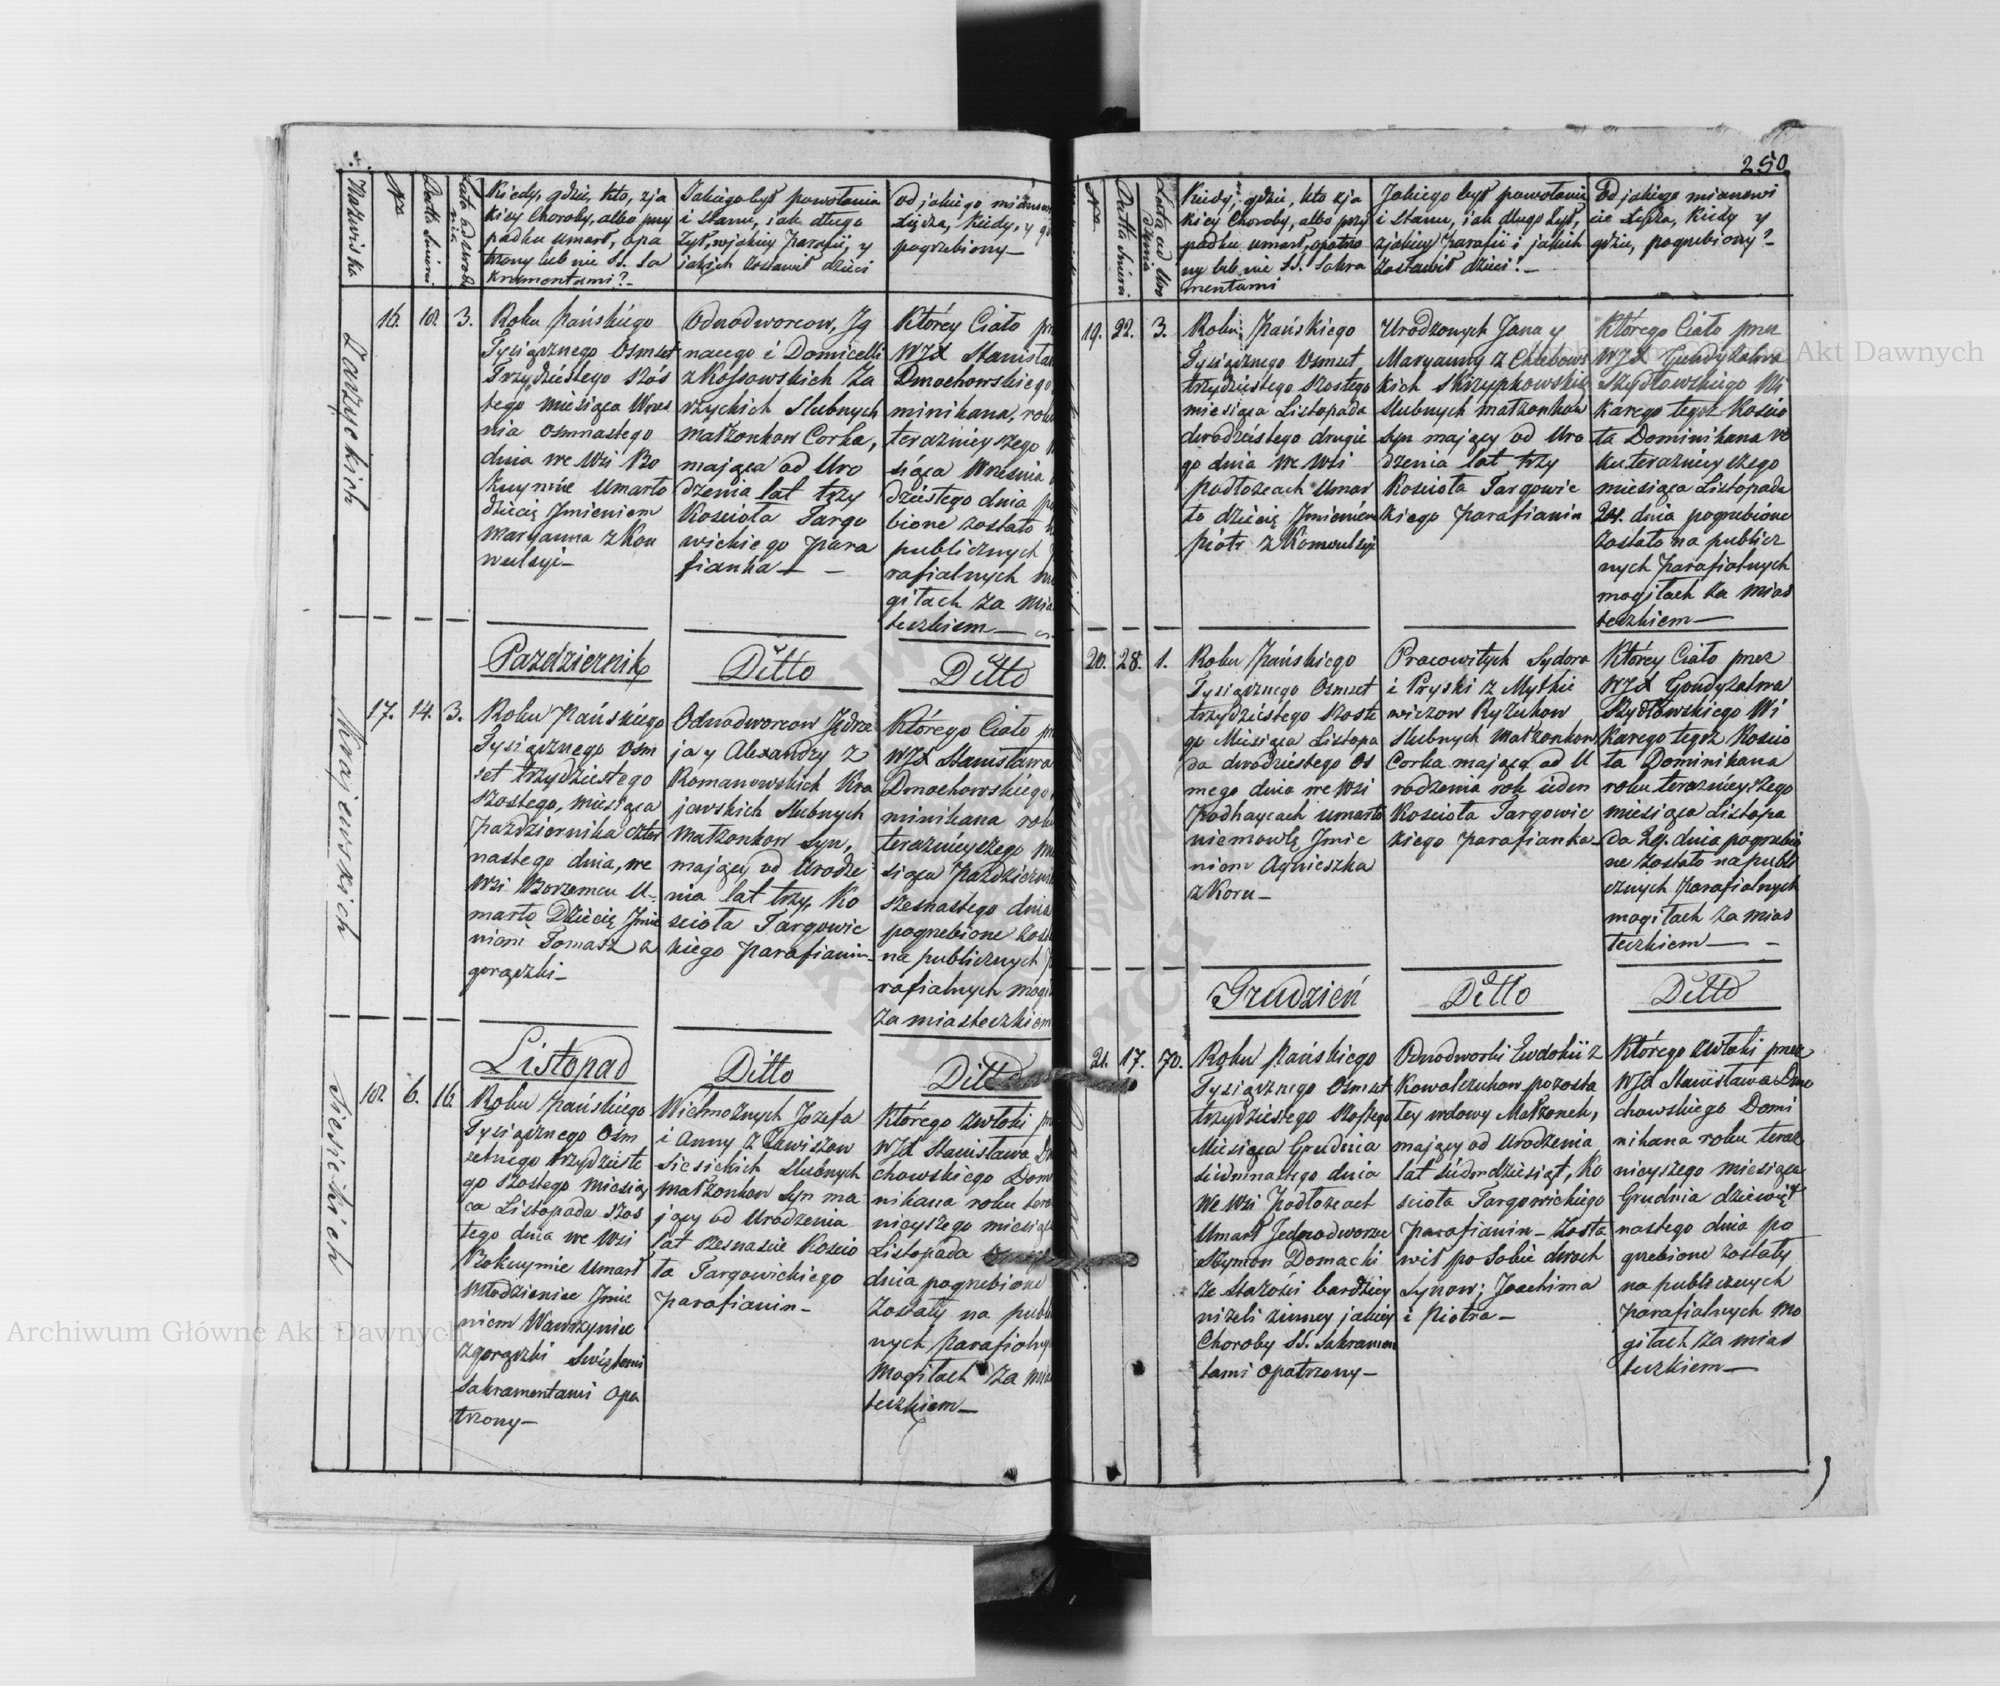 250
Nazwiska
No
Datta Śmierci
Lata od Urodzenia
Kiedy, gdzie, kto, z ja
kiey Choroby, albo przy
padku umarł, opa
trzony lub nie SS. Sa
kramentami?
Jakiego był powołania
i stanu, jak długo
żył, w jakiey Parafii, y
jakich zostawił dzieci
Od jakiego mianow
Xiędza, kiedy, y g
pogrzebiony
Zarzyckich
16.
18.
3.
Roku Pańskiego
Tysiącznego Osmset
Trzydziestego szós
tego miesiąca Wrzes
nia osmnastego
dnia we Wsi Bo
kuymie Umarło
dziecię Imieniem
Maryanna z Kon
wulsyi
Odnodworcow, Ig
nacego i Domicelli
z Kossowskich Za
rzyckich Slubnych
małzonkow Corka,
mająca od Uro
dzenia lat trzy
Kosciola Targo
wickiego Para
fianka
Którey Ciało
WJX Stanisła
Dmochowskiego
minikana, roku
teraznieyszego
siąca Wrzesnia
dziestego dnia
bione zostało
publicznych
rafialnych
gilach za mia
teczkiem
Pazdziernik
Ditto
Ditto
Krajewskich
17.
14.
3.
Roku Pańskiego
Tysiącznego Osm
set trzydziestego
szostego, miesiąca
Pazdziernika czter
nastego dnia, we
Wsi Worzemcu U
marło Dziecię Imie
niem Tomasz z
gorączki
Odnodworcow Jędrze
ja y Alexandry z
Romanowskich Kra
jewskich Slubnych
Małzonkow Syn,
mający od Urodze
nia lat trzy, Ko
sciola Targowic
kiego Parafianin
Którego Ciało
WJX Stanisława
Dmochowskiego
minikana roku
teraznieyszego
siąca Pazdziernik
szesnastego dnia
pogrzebione zost
na publicznych
rafialnych mogi
za miasteczkiem
Listopad
Ditto
Ditto
Siesickich
18.
6.
16.
Roku Pańskiego
Tysiącznego Ośm
setnego trzydzieste
go szostego miesią
ca Listopada szos
tego dnia we Wsi
Bokuymie Umarł
Młodzieniec Imie
niem Wawrzyniec
z gorączki Swiętemi
Sakramentami Opa
trzony
Wielmoznych Jozefa
i Anny z Zawiszow
Siesickich Slubnych
Małzonkow Syn ma
jący od Urodzenia
lat szesnascie Koscio
ła Targowickiego
Parafianin
Którego zwłoki
WJX Stanisława D
chowskiego Dom
nikana roku tera
znieyszego miesiąca
Listopada
dnia pogrzebione
zostały na publi
nych parafialny
Mogiłach za mia
teczkiem
No
Datta Śmierci
Lata od Uro
dzenia
Kiedy, gdzie, kto z ja
kiey Choroby, albo przy
padku umarł, opatrzo
ny lub nie SS. Sakra
mentami
Jakiego był powołania
i stanu, jak długo żył,
z jakiey Parafii i jakich
zostawił dzieci?
Od jakiego mianowi
cie Xiędza, kiedy y
gdzie, pogrzebiony?
19.
22.
3.
Roku Pańskiego
Tysiącznego Osmset
trzydziestego szostego
miesiąca Listopada
dwodziestego drugie
go dnia We Wsi
Podłozcach Umar
ło dziecię Imieniem
Piotr z Konwulsyi
Urodzonych Jana y
Maryanny z Chlebows
kich Skrzypkowskich
Slubnych małzonkow
Syn mający od Uro
dzenia lat trzy
Kosciola Targowic
kiego Parafianin
Którego Ciało przez
WJX Gundyzalwa
Szydłowskiego Wi
karego tegoż Koscio
ła Dominikana ro
ku teraznieyszego
miesiąca Listopada
24. dnia pogrzebione
zostało na publicz
nych Parafialnych
mogiłach za mias
teczkiem
20.
28.
1.
Roku Pańskiego
Tysiącznego Osmset
trzydziestego szoste
go Miesiąca Listopa
da dwodziestego Os
mego dnia we Wsi
Podhaycach umarło
niemowlę Imie
niem Agnieszka
z Koru
Pracowitych Sydora
i Pryski z Mytkie
wiczow Ryzukow
Slubnych Małzonkow
Corka mająca od U
rodzenia rok ieden
Kosciola Targowic
kiego Parafianka
Którey Ciało przez
WJX Gondyzalwa
Szydłowskiego Wi
karego tegoż Koscio
ła Dominikana
roku teraznieyszego
miesiąca Listopa
da 29. dnia pogrzebio
ne zostało na publi
cznych Parafialnych
mogiłach za mias
teczkiem
Grudzień
Ditto
Ditto
21.
17.
70.
Roku Pańskiego
Tysiącznego Osmset
trzydziestego szostego
Miesiąca Grudnia
siedmnastego dnia
We Wsi Podłozcach
Umarł Jednodworzec
Szymon Domacki
ze starości bardziey
nizeli z inney jakiey
Choroby SS. Sakramen
tami opatrzony
Odnodworki Ewdokii z
Kowalczukow pozosta
łey wdowy Małzonek,
mający od Urodzenia
lat siedmdziesiąt, Ko
sciola Targowickiego
Parafianin Zosta
wił po Sobie dwoch
Synow; Joachima
i Piotra
Którego zwłoki przez
WJX Stanisława Dmo
chowskiego Domi
nikana roku teraz
nieyszego miesiąca
Grudnia dziewięt
nastego dnia po
grzebione zostały
na publicznych
Parafialnych Mo
giłach za mias
teczkiem
Archiwum Główne Akt Dawnych
Akt Dawnych